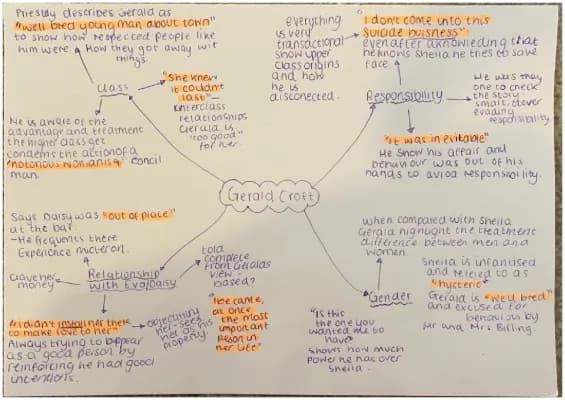 Priestly describes Gerald as
"well bred young man about town"
to show how respected people like
him were
How they got away wit
things.
Class
"She knew
it couldn't
last" -
interclass
relationships
Gerald is
"too good"
for her.
He is aware of the
advantage and treatment
the higher class get
condems the action of a
"notorious womanising"
concil
man.
everything
is very
transactional
show upper
class origins
and how
he is
disconected.
"I don't come into this
suicide buisness"
even after aknowleding that
he knows sheila he tries to save
face.
Responsibility
He was they
one to check
the story
smart, clever
evading
responsibility
"it was inevitable"
He show his affair and
behaviour was out of his
hands to aviod responsibility.
Gerald Croft
Says Daisy was "out of place"
at the bar
- He frequents there
Experience
Gave her
money
Relationship
with Eva/Daisy
told
complete
from Geralds
view -
biased?
"I didn't install her there
to make love to her"
Always trying to appear
as a good person by
reinforcing he had good
intentions.
objectifying
her - sees
her as his
property.
"became,
at once
the most
important
person in
her life"
when compared with Sheila
Gerald highlight the treatment
difference between men and
women.
Gender
Sheila is infantised
and refered to as
"hysteric"
Gerald is "well bred"
and excused for
behaviour by
Mr and Mrs Birling.
"Is this
the one you
wanted me to
have"
shows how much
power he has over
Sheila.